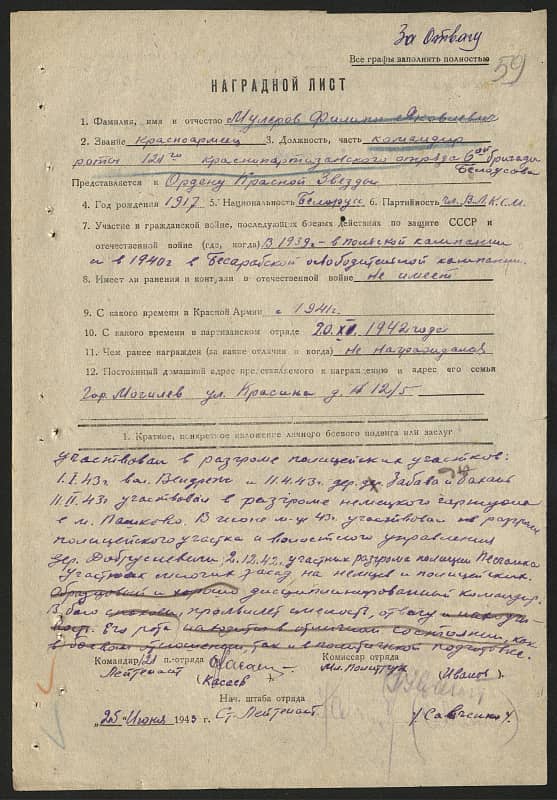 За Отвагу
Все графы заполнить полностью
59
НАГРАДНОЙ ЛИСТ
1. Фамилия, имя и отчество Мулеров Филипп Яковлевич
2. Звание красноармеец 3. Должность, часть командир
роты 121го краснопартизанского отряда 6ой бригады
Белоусова
Представляется к Ордену Красной Звезды
4. Год рождения 1917 5. Национальность Белорус 6. Партийность чл. ВЛКСМ
7. Участие в гражданской войне, последующих боевых действиях по защите СССР и
отечественной войне (где, когда) В 1939г – в польской кампании
и в 1940г в Бесарабской освободительной кампании.
8. Имеет ли ранения и контузии в отечественной войне не имеет
9. С какого времени в Красной Армии с 1941г.
10. С какого времени в партизанском отряде 20.XII.1942 года
11. Чем ранее награжден (за какие отличия и когда) не награждался
12. Постоянный домашний адрес представляемого к награждению и адрес его семьи
Гор. Могилев ул. Красина д. № 12/5
1. Краткое, конкретное изложение личного боевого подвига или заслуг
участвовал в разгроме полицейских участков:
1.I.43г вол. Вендреж и 11.4.43г. дер. Забава и
11.II.43г участвовал в разгроме немецкого гарнизона
в м. Пашково. В июне м-це 43г. участвовал в
полицейского участка и волостного управления
дер. Добрусневичи, 2.12.42. участник разгрома полиции
Участник многих засад, на немцев и полицейских.
Образцовый и хорошо дисциплинированный командир.
В бою спокоен, проявляет смелость, отвагу и
Его рота находится в отличном состоянии, как
в боевом отношении, так и в политической подготовке.
Командир 121 п.-отряда
Лейтенант (Касаев
Комиссар отряда
Мл. Политрук (Иванов)
Нач. штаба отряда
"25" Июня 1943 г. Ст. Лейтенант /Савченко/